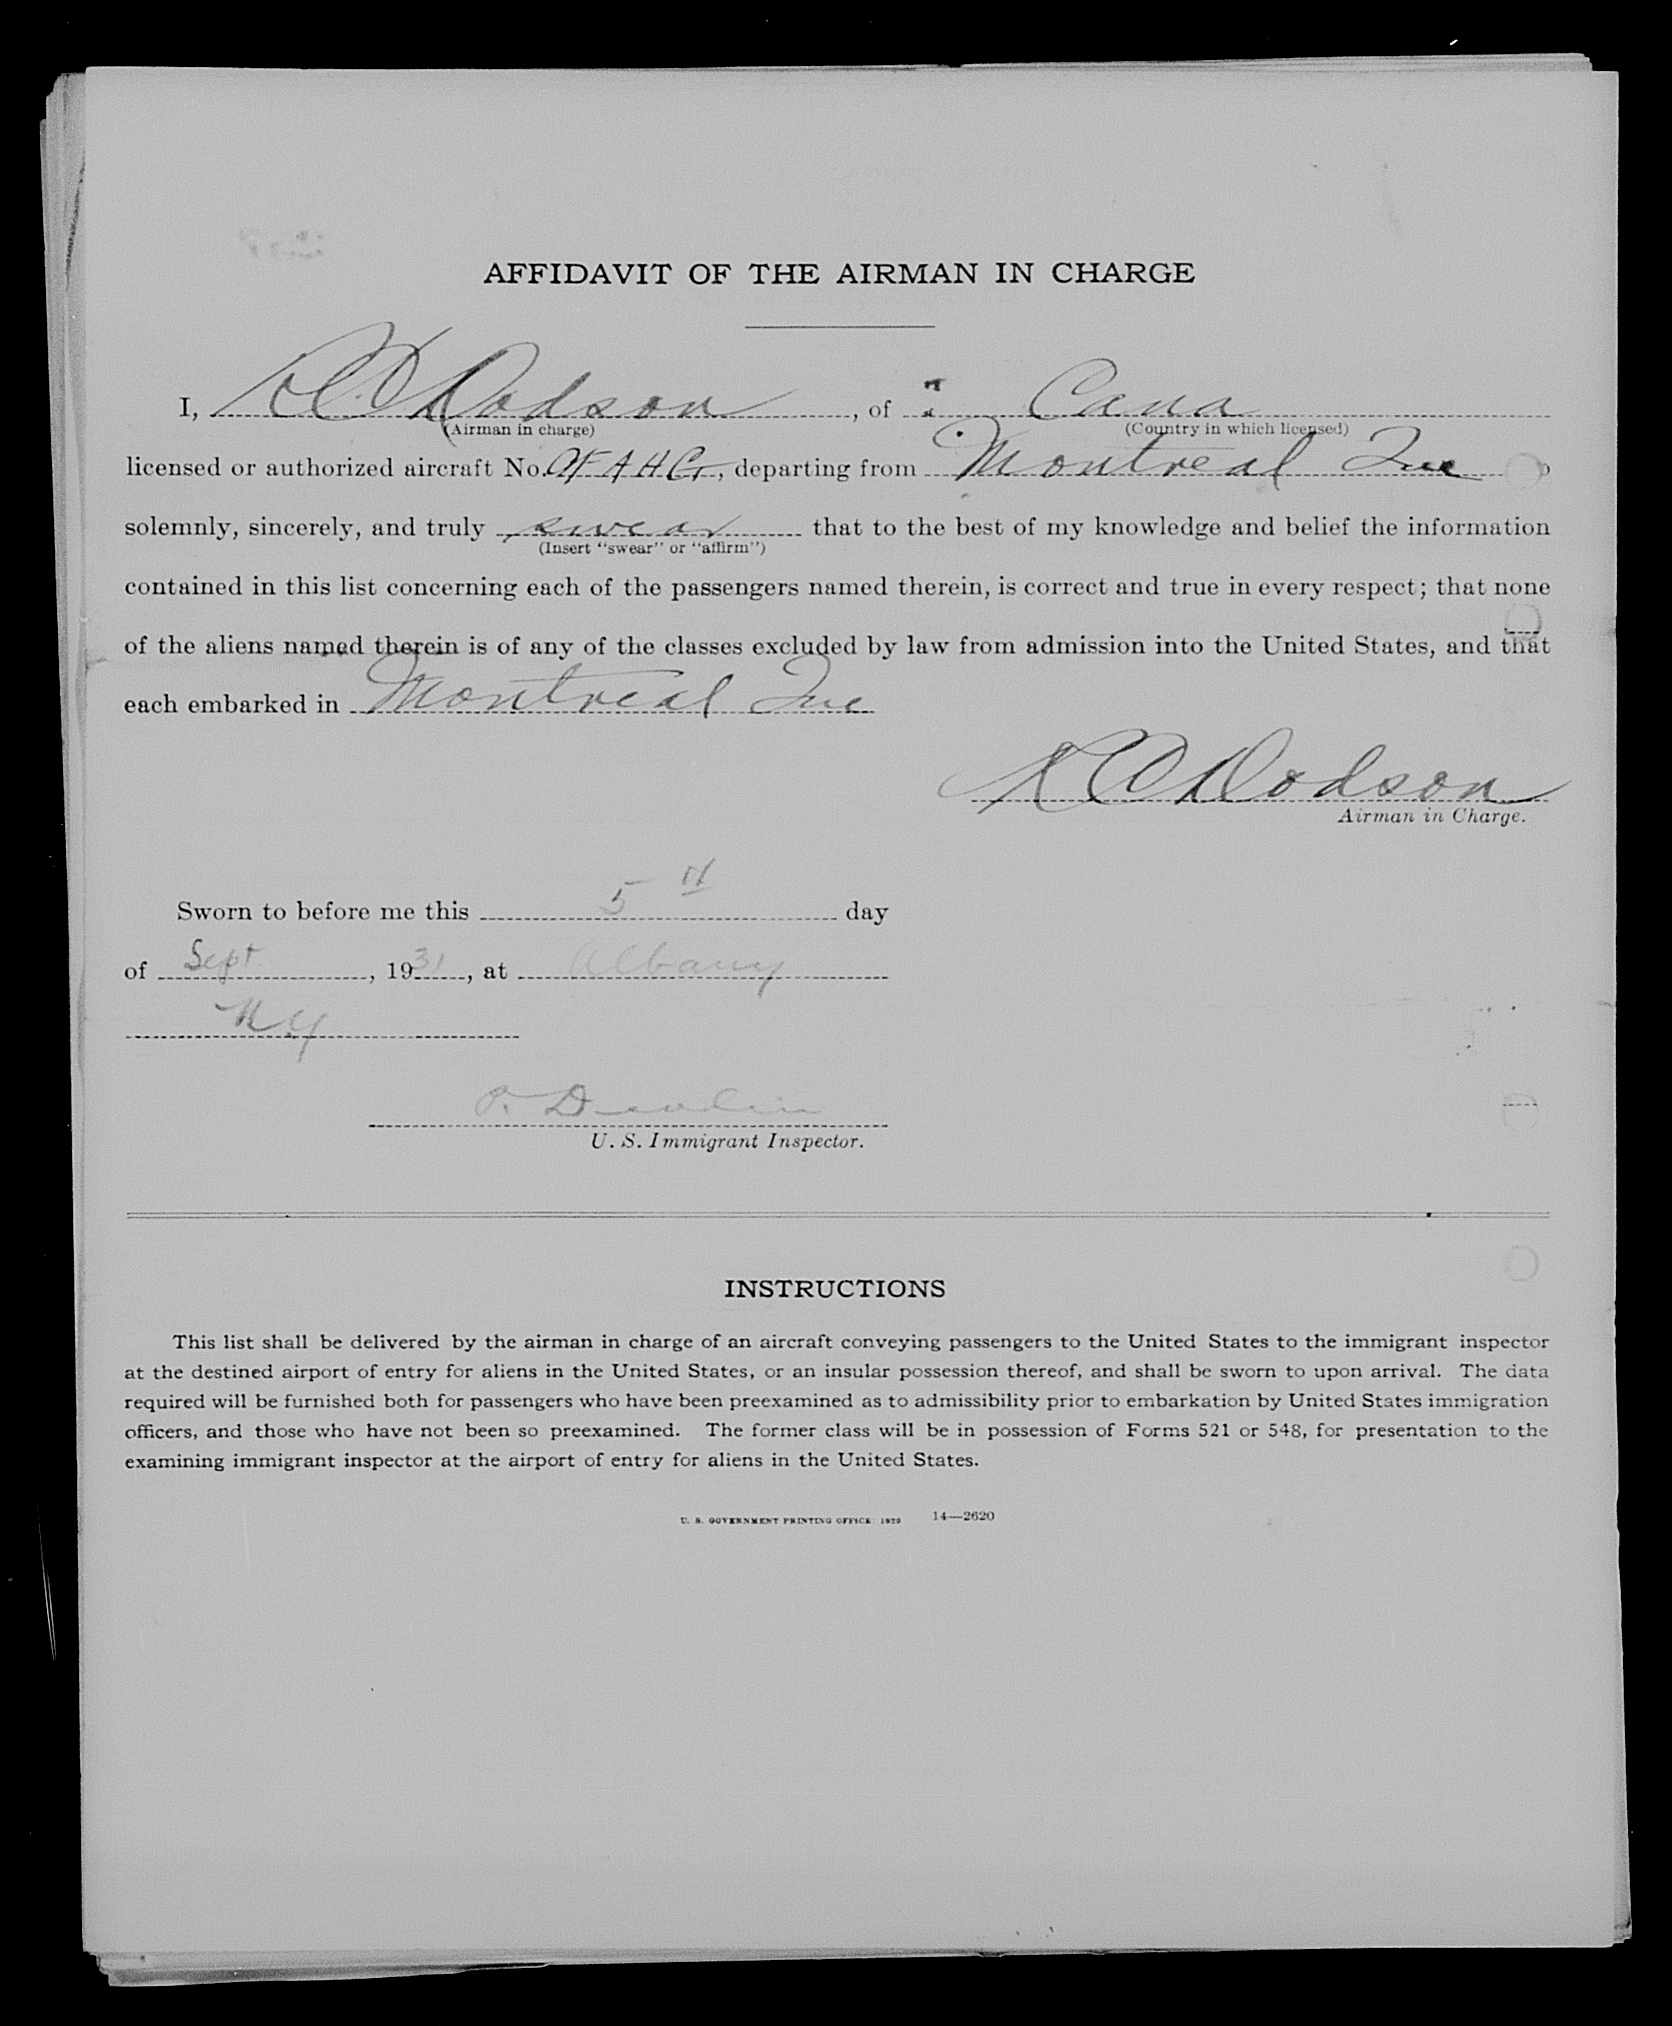 AFFIDAVIT OF THE AIRMAN IN CHARGE
I, Dodson, of Cana
(Airman in charge) (Country in which licensed)
licensed or authorized aircraft No. departing from Montreal Que
solemnly, sincerely, and truly swear that to the best of my knowledge and belief the information
(Insert "swear" or "affirm")
contained in this list concerning each of the passengers named therein, is correct and true in every respect; that none
of the aliens named therein is of any of the classes excluded by law from admission into the United States, and that
each embarked in Montreal Que
Dodson
Airman in Charge.
Sworn to before me this 5th day
of Sept, 1931, at Albany
NY
U. S. Immigrant Inspector.
INSTRUCTIONS
This list shall be delivered by the airman in charge of an aircraft conveying passengers to the United States to the immigrant inspector
at the destined airport of entry for aliens in the United States, or an insular possession thereof, and shall be sworn to upon arrival. The data
required will be furnished both for passengers who have been preexamined as to admissibility prior to embarkation by United States immigration
officers, and those who have not been so preexamined. The former class will be in possession of Forms 521 or 548, for presentation to the
examining immigrant inspector at the airport of entry for aliens in the United States.
U. S. GOVERNMENT PRINTING OFFICE: 1929 14—2620